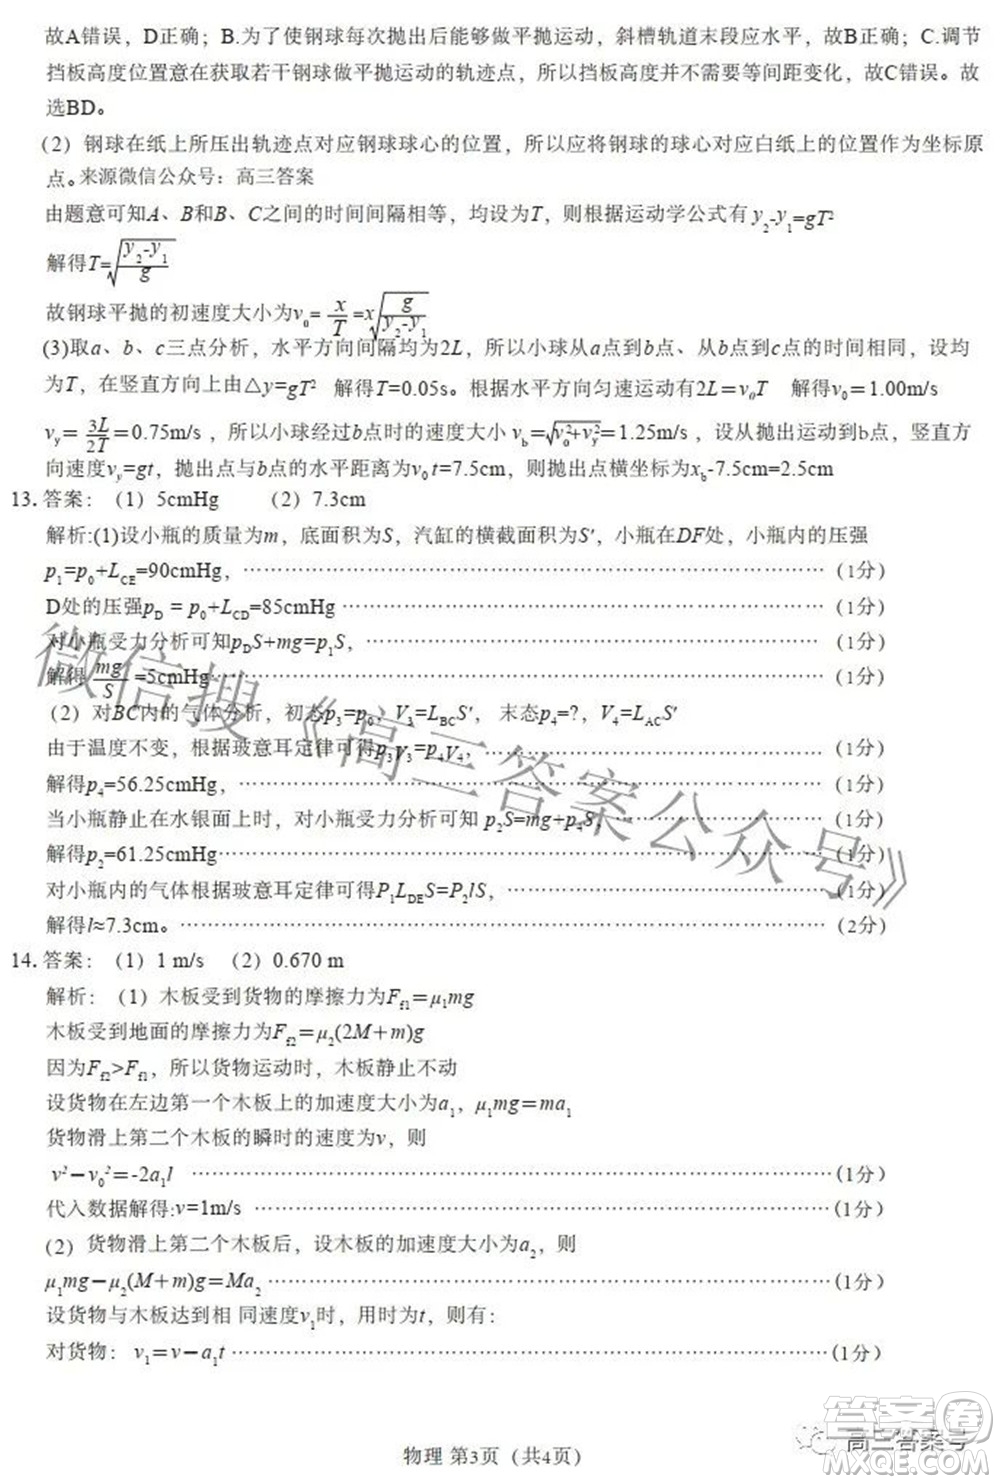 故A错误，D正确；B.为了使钢球每次抛出后能够做平抛运动，斜槽轨道末段应水平，故B正确；C.调节
挡板高度位置意在获取若干钢球做平抛运动的轨迹点，所以挡板高度并不需要等间距变化，故C错误。故
选BD。
(2) 钢球在纸上所压出轨迹点对应钢球球心的位置，所以应将钢球的球心对应白纸上的位置作为坐标原
点。来源微信公众号：高三答案
由题意可知A、B和B、C之间的时间间隔相等，均设为T，则根据运动学公式有y₂-y₁=gT²
解得T=√((y₂-y₁)/g)
故钢球平抛的初速度大小为v₀= x/T =x√(g/(y₂-y₁))
(3)取a、b、c三点分析，水平方向间隔均为2L，所以小球从a点到b点、从b点到c点的时间相同，设均
为T，在竖直方向上由△y=gT² 解得T=0.05s。根据水平方向匀速运动有2L=v₀T 解得v₀=1.00m/s
vy= 3L/2T =0.75m/s ，所以小球经过b点时的速度大小 vb=√(v₀²+vy²)=1.25m/s ，设从抛出运动到b点，竖直方
向速度vy=gt，抛出点与b点的水平距离为v₀t=7.5cm，则抛出点横坐标为xb-7.5cm=2.5cm
13.答案：(1) 5cmHg (2) 7.3cm
解析:(1)设小瓶的质量为m，底面积为S，汽缸的横截面积为S′，小瓶在DF处，小瓶内的压强
p₁=p₀+L_CE=90cmHg，……(1分)
D处的压强p_D = p₀+L_CD=85cmHg……(1分)
对小瓶受力分析可知p_DS+mg=p₁S，……(1分)
解得 mg/S =5cmHg……(1分)
(2) 对BC内的气体分析，初态p₃=p₀，V₃=L_BCS′，末态p₄=?，V₄=L_ACS′
由于温度不变，根据玻意耳定律可得p₃V₃=p₄V₄，……(1分)
解得p₄=56.25cmHg……(1分)
当小瓶静止在水银面上时，对小瓶受力分析可知 p₂S=mg+p₄S，……(1分)
解得p₂=61.25cmHg……(1分)
对小瓶内的气体根据玻意耳定律可得P₁L_DES=P₂lS，……(1分)
解得l≈7.3cm。……(2分)
14.答案：(1) 1 m/s (2) 0.670 m
解析：(1) 木板受到货物的摩擦力为F_f1=μ₁mg
木板受到地面的摩擦力为F_f2=μ₂(2M+m)g
因为F_f2>F_f1，所以货物运动时，木板静止不动
设货物在左边第一个木板上的加速度大小为a₁，μ₁mg=ma₁
货物滑上第二个木板的瞬时的速度为v，则
v²-v₀²=-2a₁l ……(1分)
代入数据解得:v=1m/s ……(1分)
(2) 货物滑上第二个木板后，设木板的加速度大小为a₂，则
μ₁mg-μ₂(M+m)g=Ma₂……(1分)
设货物与木板达到相 同速度v₁时，用时为t，则有：
对货物：v₁=v-a₁t……(1分)
物理 第3页（共4页）
微信搜《高三答案公众号》
高三答案号
答案圈
MXQE.COM